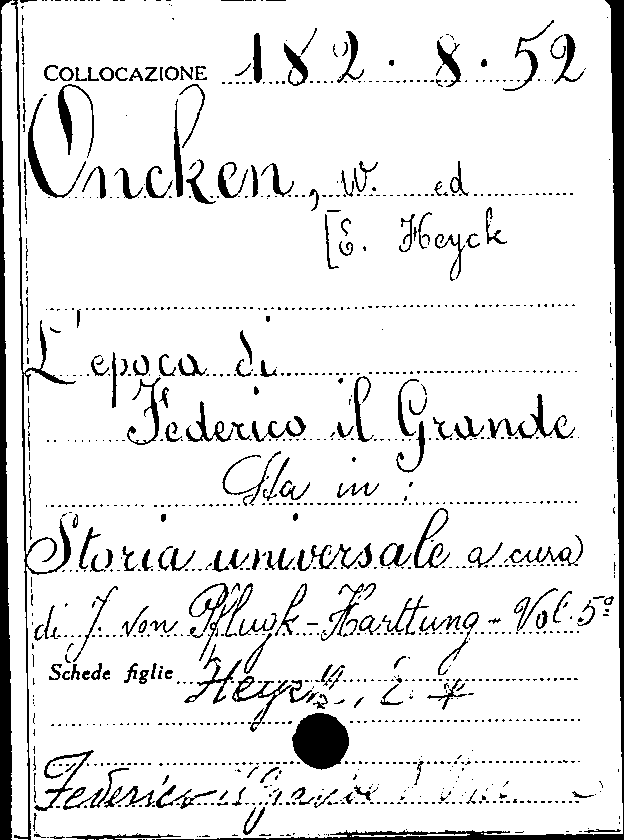 COLLOCAZIONE 182.8.52
Oncken, W. ed
[E. Heyck
L'epoca di
Federico il Grande
Sta in:
Storia universale a cura
di J. von Pflugk-Harttung - Vol. 5º
Schede figlie Heyck, E. *
Federico il Grande